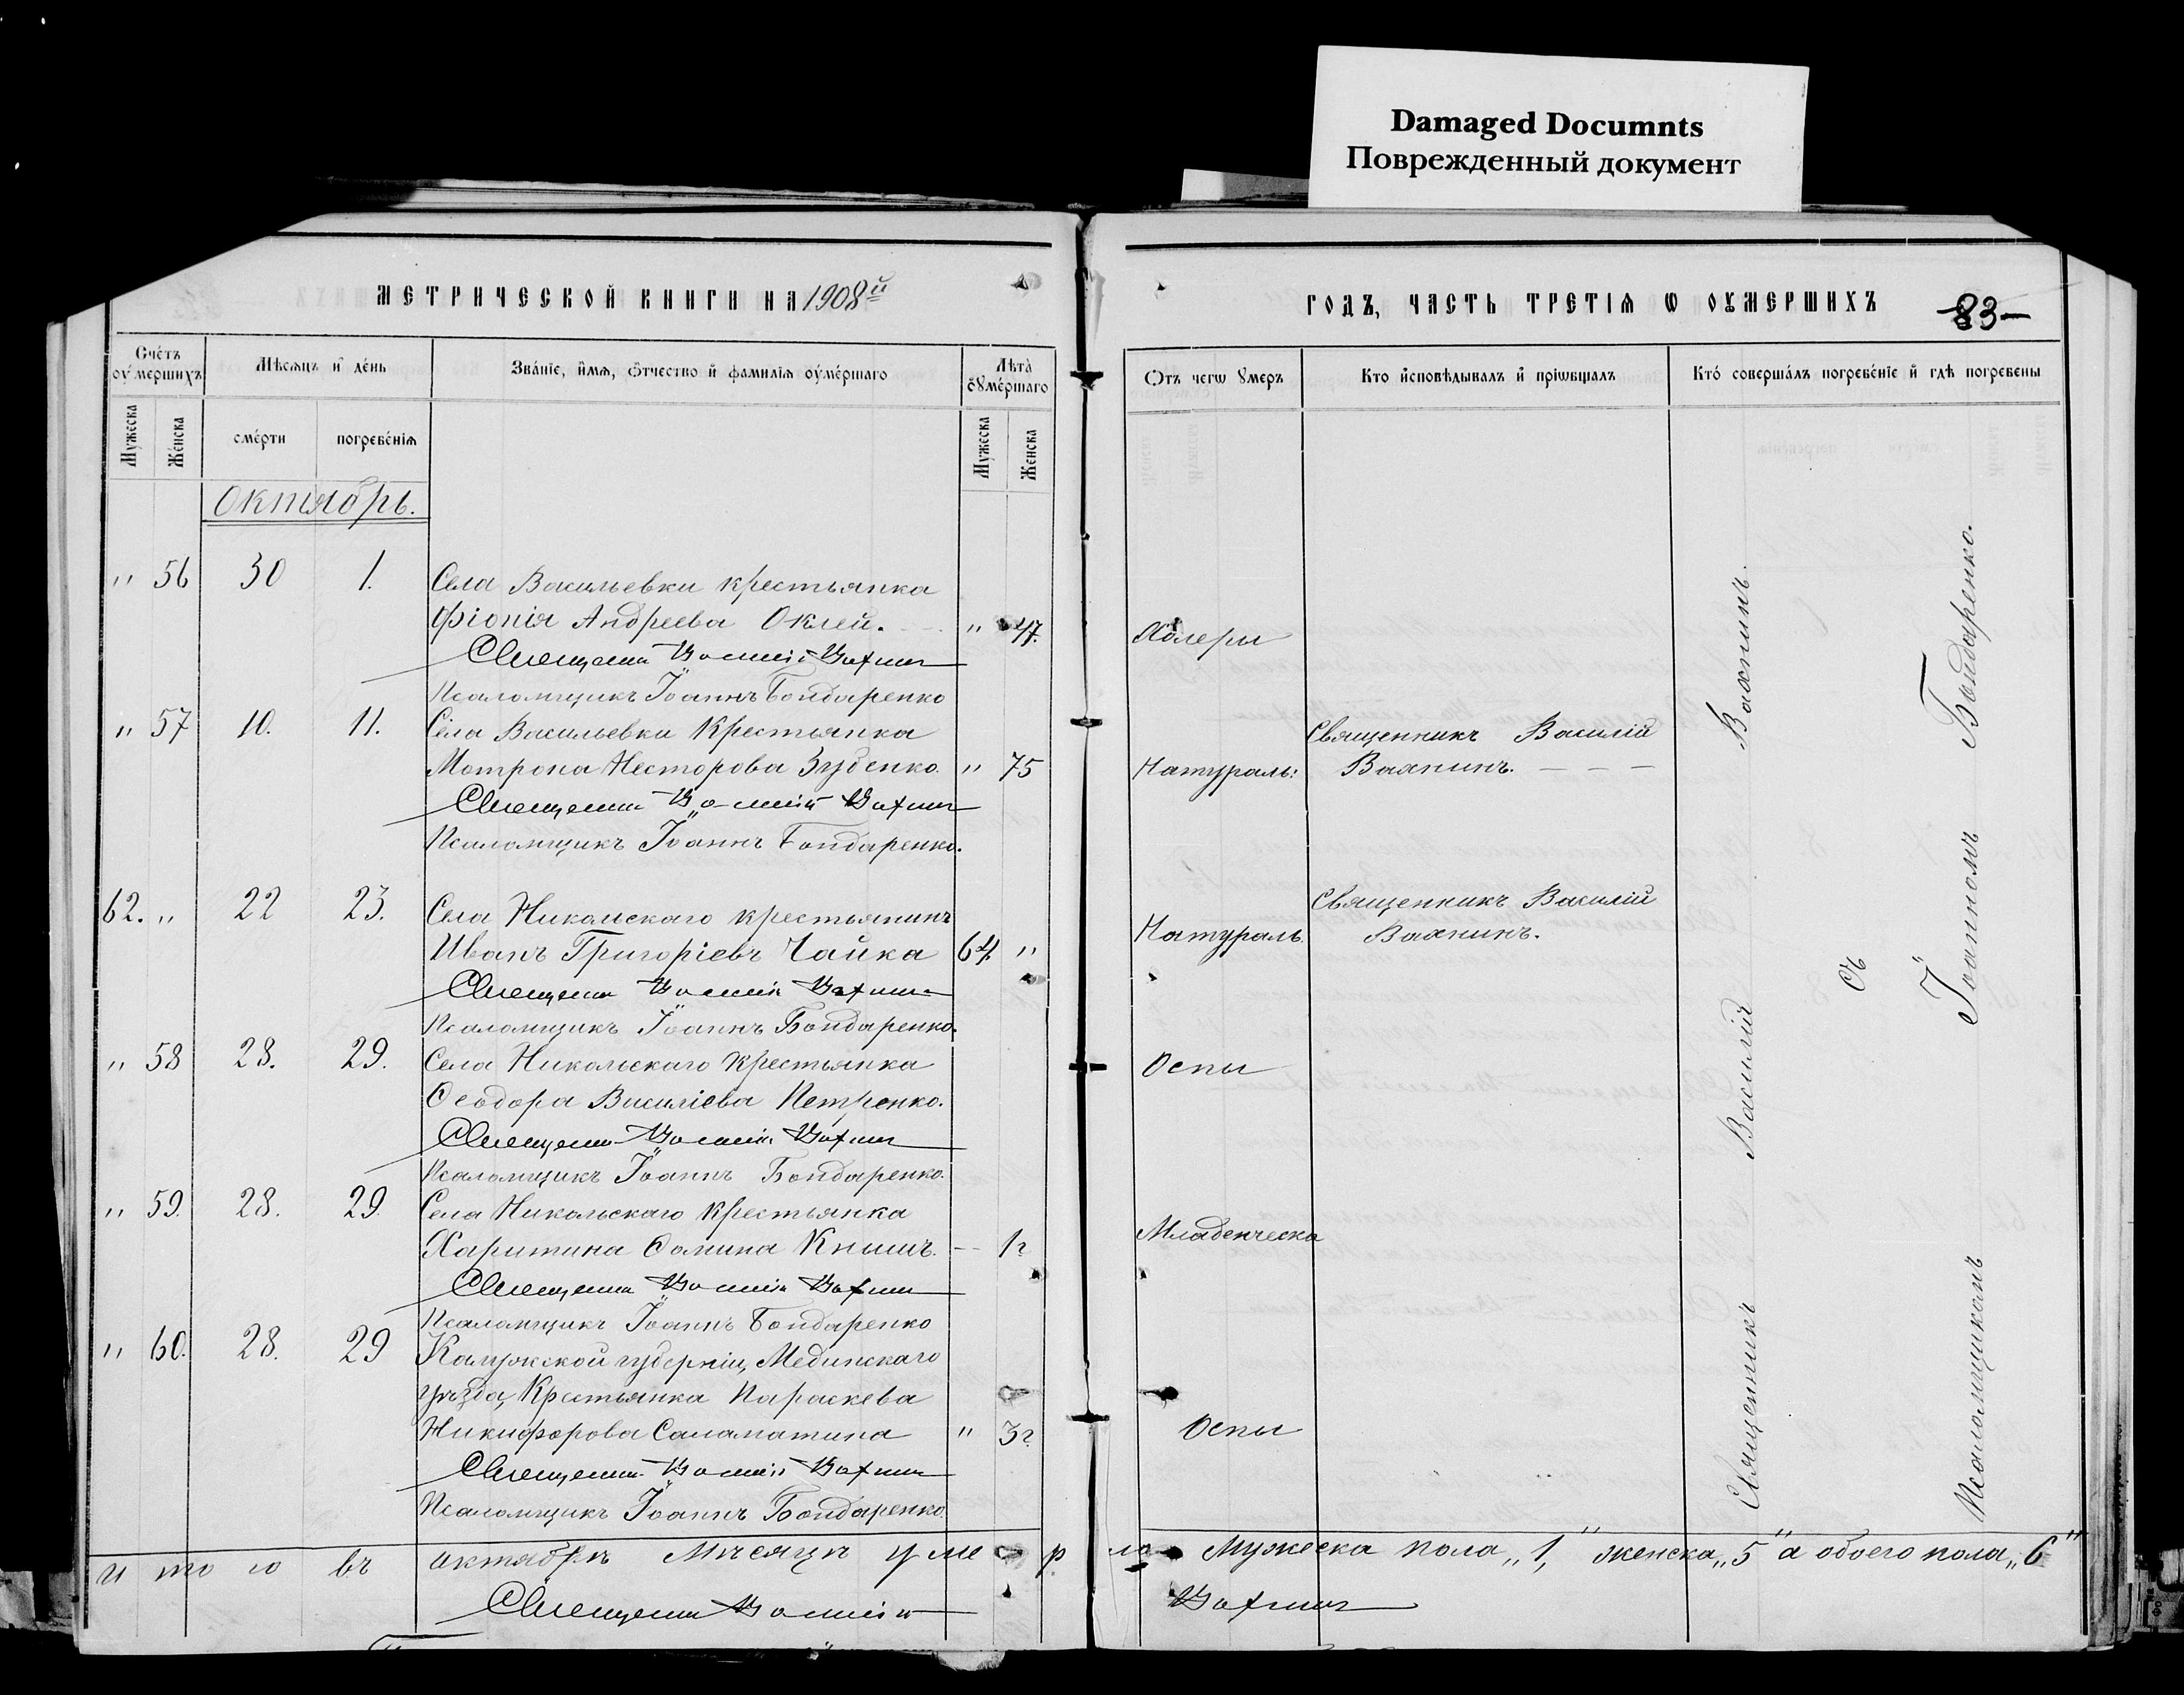 Damaged Documnts
Поврежденный документ
МЕТРИЧЕСКОЙ КНИГИ НА 1908й
ГОДЪ, ЧАСТЬ ТРЕТІѦ Ѡ ОУМЕРШИХЪ
83
Счетъ оумершихъ
Мѣсяцъ и день
Званіе, имя, отчество и фамилія оумершаго
Лѣта оумершаго
Отъ чегω умеръ
Кто исповѣдывалъ и пріωбщалъ
Кто совершалъ погребеніе и гдѣ погребены
Мужеска
Женска
смерти
погребенія
Мужеска
Женска
Октябрь.
" 56 30 1. Села Васильевки крестьянка
Фіонія Андреева Оклей. " 47. Холеры
Священник Василій Вахнин
Псаломщикъ Іоаннъ Бондаренко
" 57 10. 11. Села Васильевки крестьянка Священникъ Василій
Мотрона Несторова Зубенко. " 75 Натураль: Вахнинъ.
Священник Василій Вахнин
Псаломщикъ Іоаннъ Бондаренко.
62. " 22 23. Села Никольскаго крестьянинъ Священникъ Василій
Иванъ Григоріевъ Чайка 64 " Натураль. Вахнинъ.
Священник Василій Вахнин
Псаломщикъ Іоаннъ Бондаренко.
" 58 28. 29. Села Никольскаго крестьянка Оспы
Ѳеодора Василіева Петренко.
Священник Василій Вахнин
Псаломщикъ Іоаннъ Бондаренко.
" 59. 28. 29 Села Никольскаго крестьянка
Харитина Ѳомина Книшъ. — 1г Младенческа
Священник Василій Вахнин
Псаломщикъ Іоаннъ Бондаренко
" 60. 28. 29 Калужской губерніи, Медынскаго
уѣзда, Крестьянка Параскева
Никифорова Саламатина " 3г. Оспы
Священник Василій Вахнин
Псаломщикъ Іоаннъ Бондаренко.
Священникъ Василій Вахнинъ.
съ
Псаломщикомъ Іоанномъ Бондаренко.
Итого въ октябрѣ мѣсяцѣ умерло Мужеска пола „1," женска „5" а обоего пола „6"
Священник Василій Вахнин